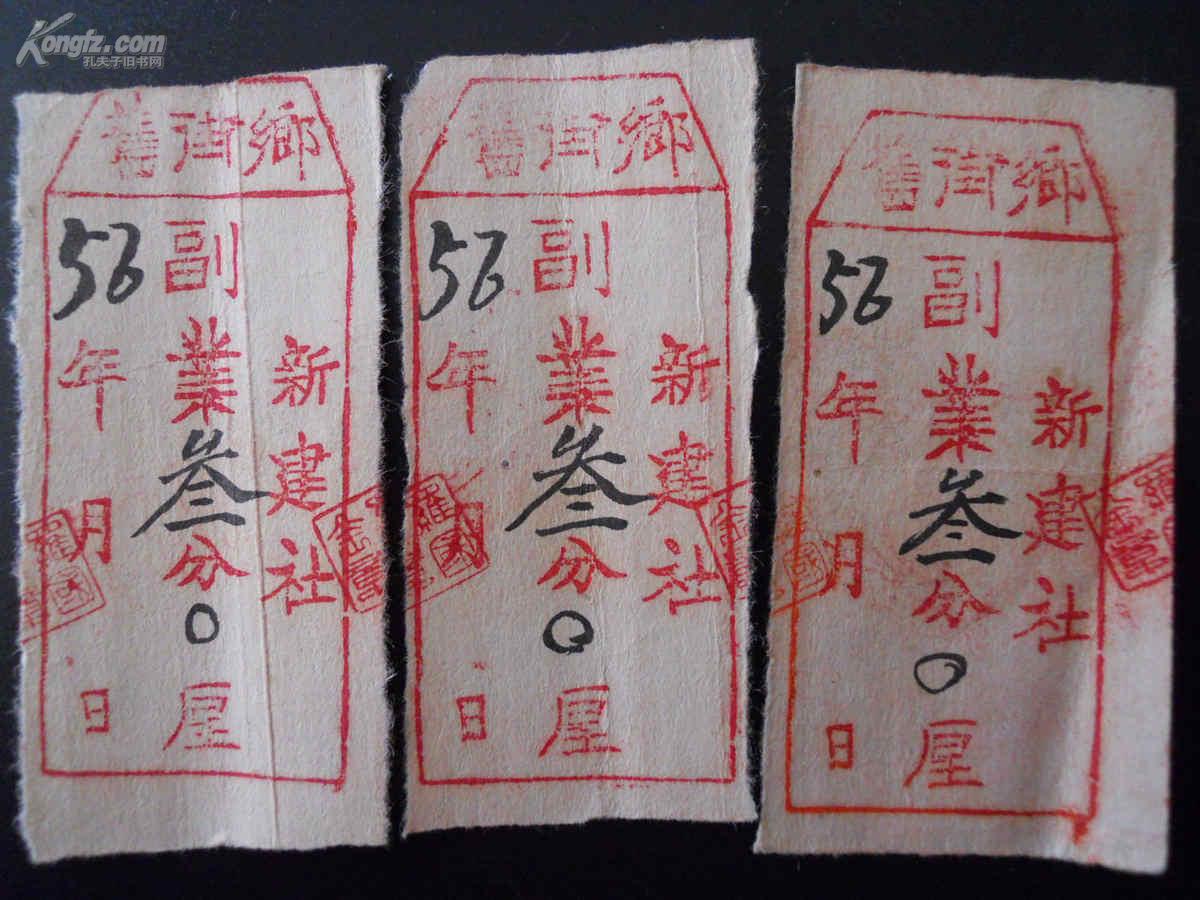 Kongfz.com
孔夫子旧书网
舊街鄉
新建社
副業叁分0厘
56年月日
舊街鄉
新建社
副業叁分0厘
56年月日
舊街鄉
新建社
副業叁分0厘
56年月日